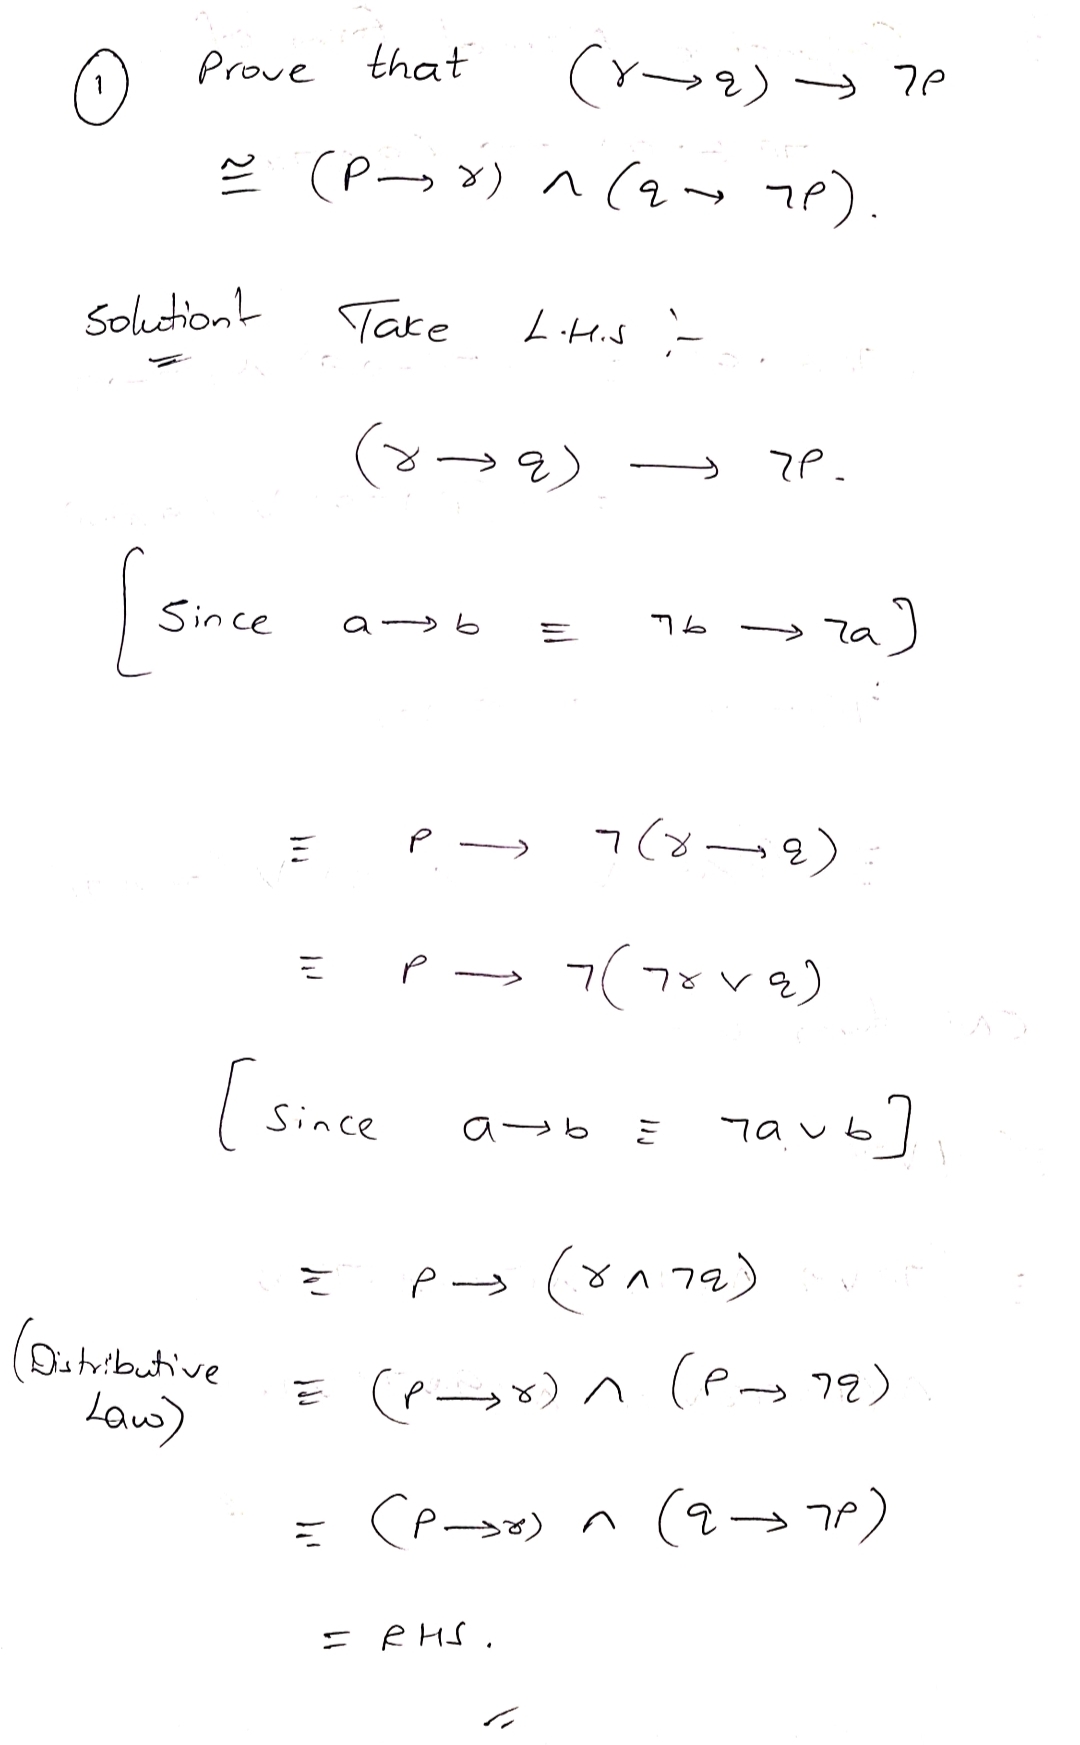 ① Prove that (r → q) → ¬p
≅ (p → r) ∧ (q → ¬p).
Solution:- Take L.H.S :-
(r → q) → ¬p.
[Since a → b ≡ ¬b → ¬a]
≡ p → ¬(r → q)
≡ p → ¬(¬r ∨ q)
[Since a → b ≡ ¬a ∨ b]
≡ p → (r ∧ ¬q)
(Distributive Law) ≡ (p → r) ∧ (p → ¬q)
≡ (p → r) ∧ (q → ¬p)
= RHS.